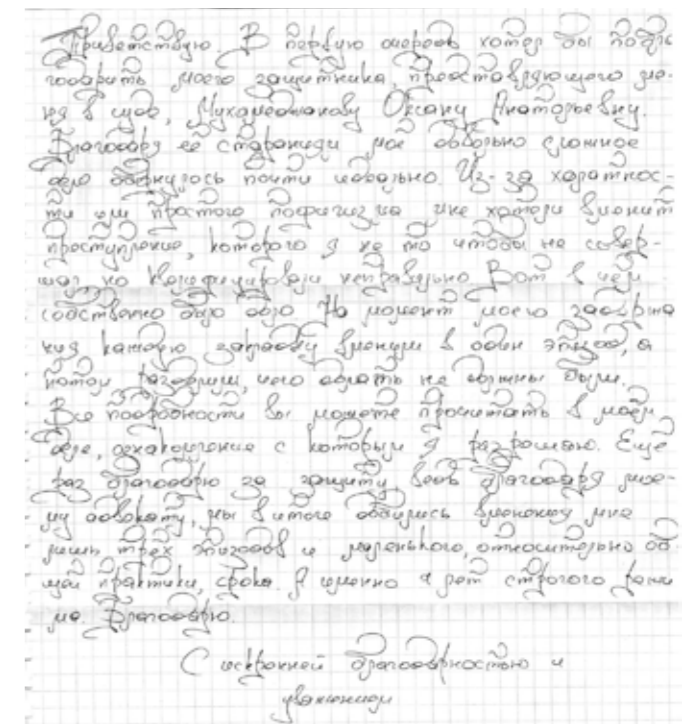 Приветствую. В первую очередь хотел бы побла
годарить моего защитника, представляющего ме-
ня в суде, Мухамеджанову Оксану Анатольевну.
Благодаря её стараниям моё довольно сложное
дело обернулось почти идеально. Из-за халатнос-
ти или простого пофигизма мне хотели вменить
преступление, которого я не то чтобы не совер-
шал, но квалифицировали неправильно. Вот в чём
собственно было дело. На момент моего задержа
ния каждую закладку вменили в один эпизод, а
потом раздробили, чего делать не должны были.
Все подробности вы можете прочитать в моём
деле, ознакомление с которым я разрешаю. Ещё
раз благодарю за защиту, ведь благодаря мое-
му адвокату, мы в итоге добились вменения мне
лишь трёх эпизодов и маленького, относительно об-
щей практики, срока. А именно 4 лет строгого режи
ма. Благодарю.
С искренней благодарностью и
уважением